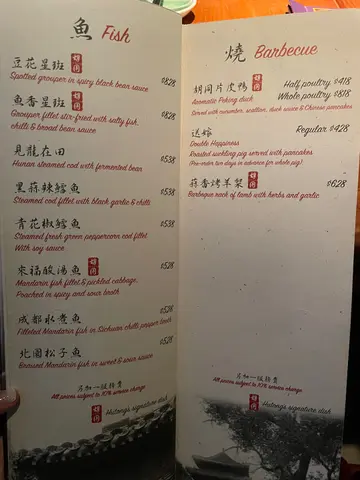 魚 Fish
豆花星斑 胡同
Spotted grouper in spicy black bean sauce $828
魚香星斑 胡同 $828
Grouper fillet stir-fried with salty fish,
chilli & broad bean sauce
見龍在田 $538
Hunan steamed cod with fermented bean
黑蒜辣鱈魚 $538
Steamed cod fillet with black garlic & chilli
青花椒鱈魚 $538
Steamed fresh green peppercorn cod fillet
With soy sauce
來福酸湯魚 胡同 $528
Mandarin fish fillet & pickled cabbage,
Poached in spicy and sour broth
成都水煮魚 $528
Filleted Mandarin fish in Sichuan chilli pepper broth
北國松子魚 $528
Boneless Mandarin fish in sweet & sour sauce
另加一服務費
All prices subject to 10% service charge
胡同 Hutong's signature dish
燒 Barbecue
胡同片皮鴨 胡同 Half poultry $478
Aromatic Peking duck Whole poultry $818
Served with cucumber, scallion, duck sauce & Chinese pancakes
送嫁 Regular $428
Double Happiness
Roasted suckling pig served with pancakes
(Pre-order two days in advance for whole pig)
蒜香烤羊架 胡同 $628
Barbeque rack of lamb with herbs and garlic
另加一服務費
All prices subject to 10% service charge
胡同 Hutong's signature dish